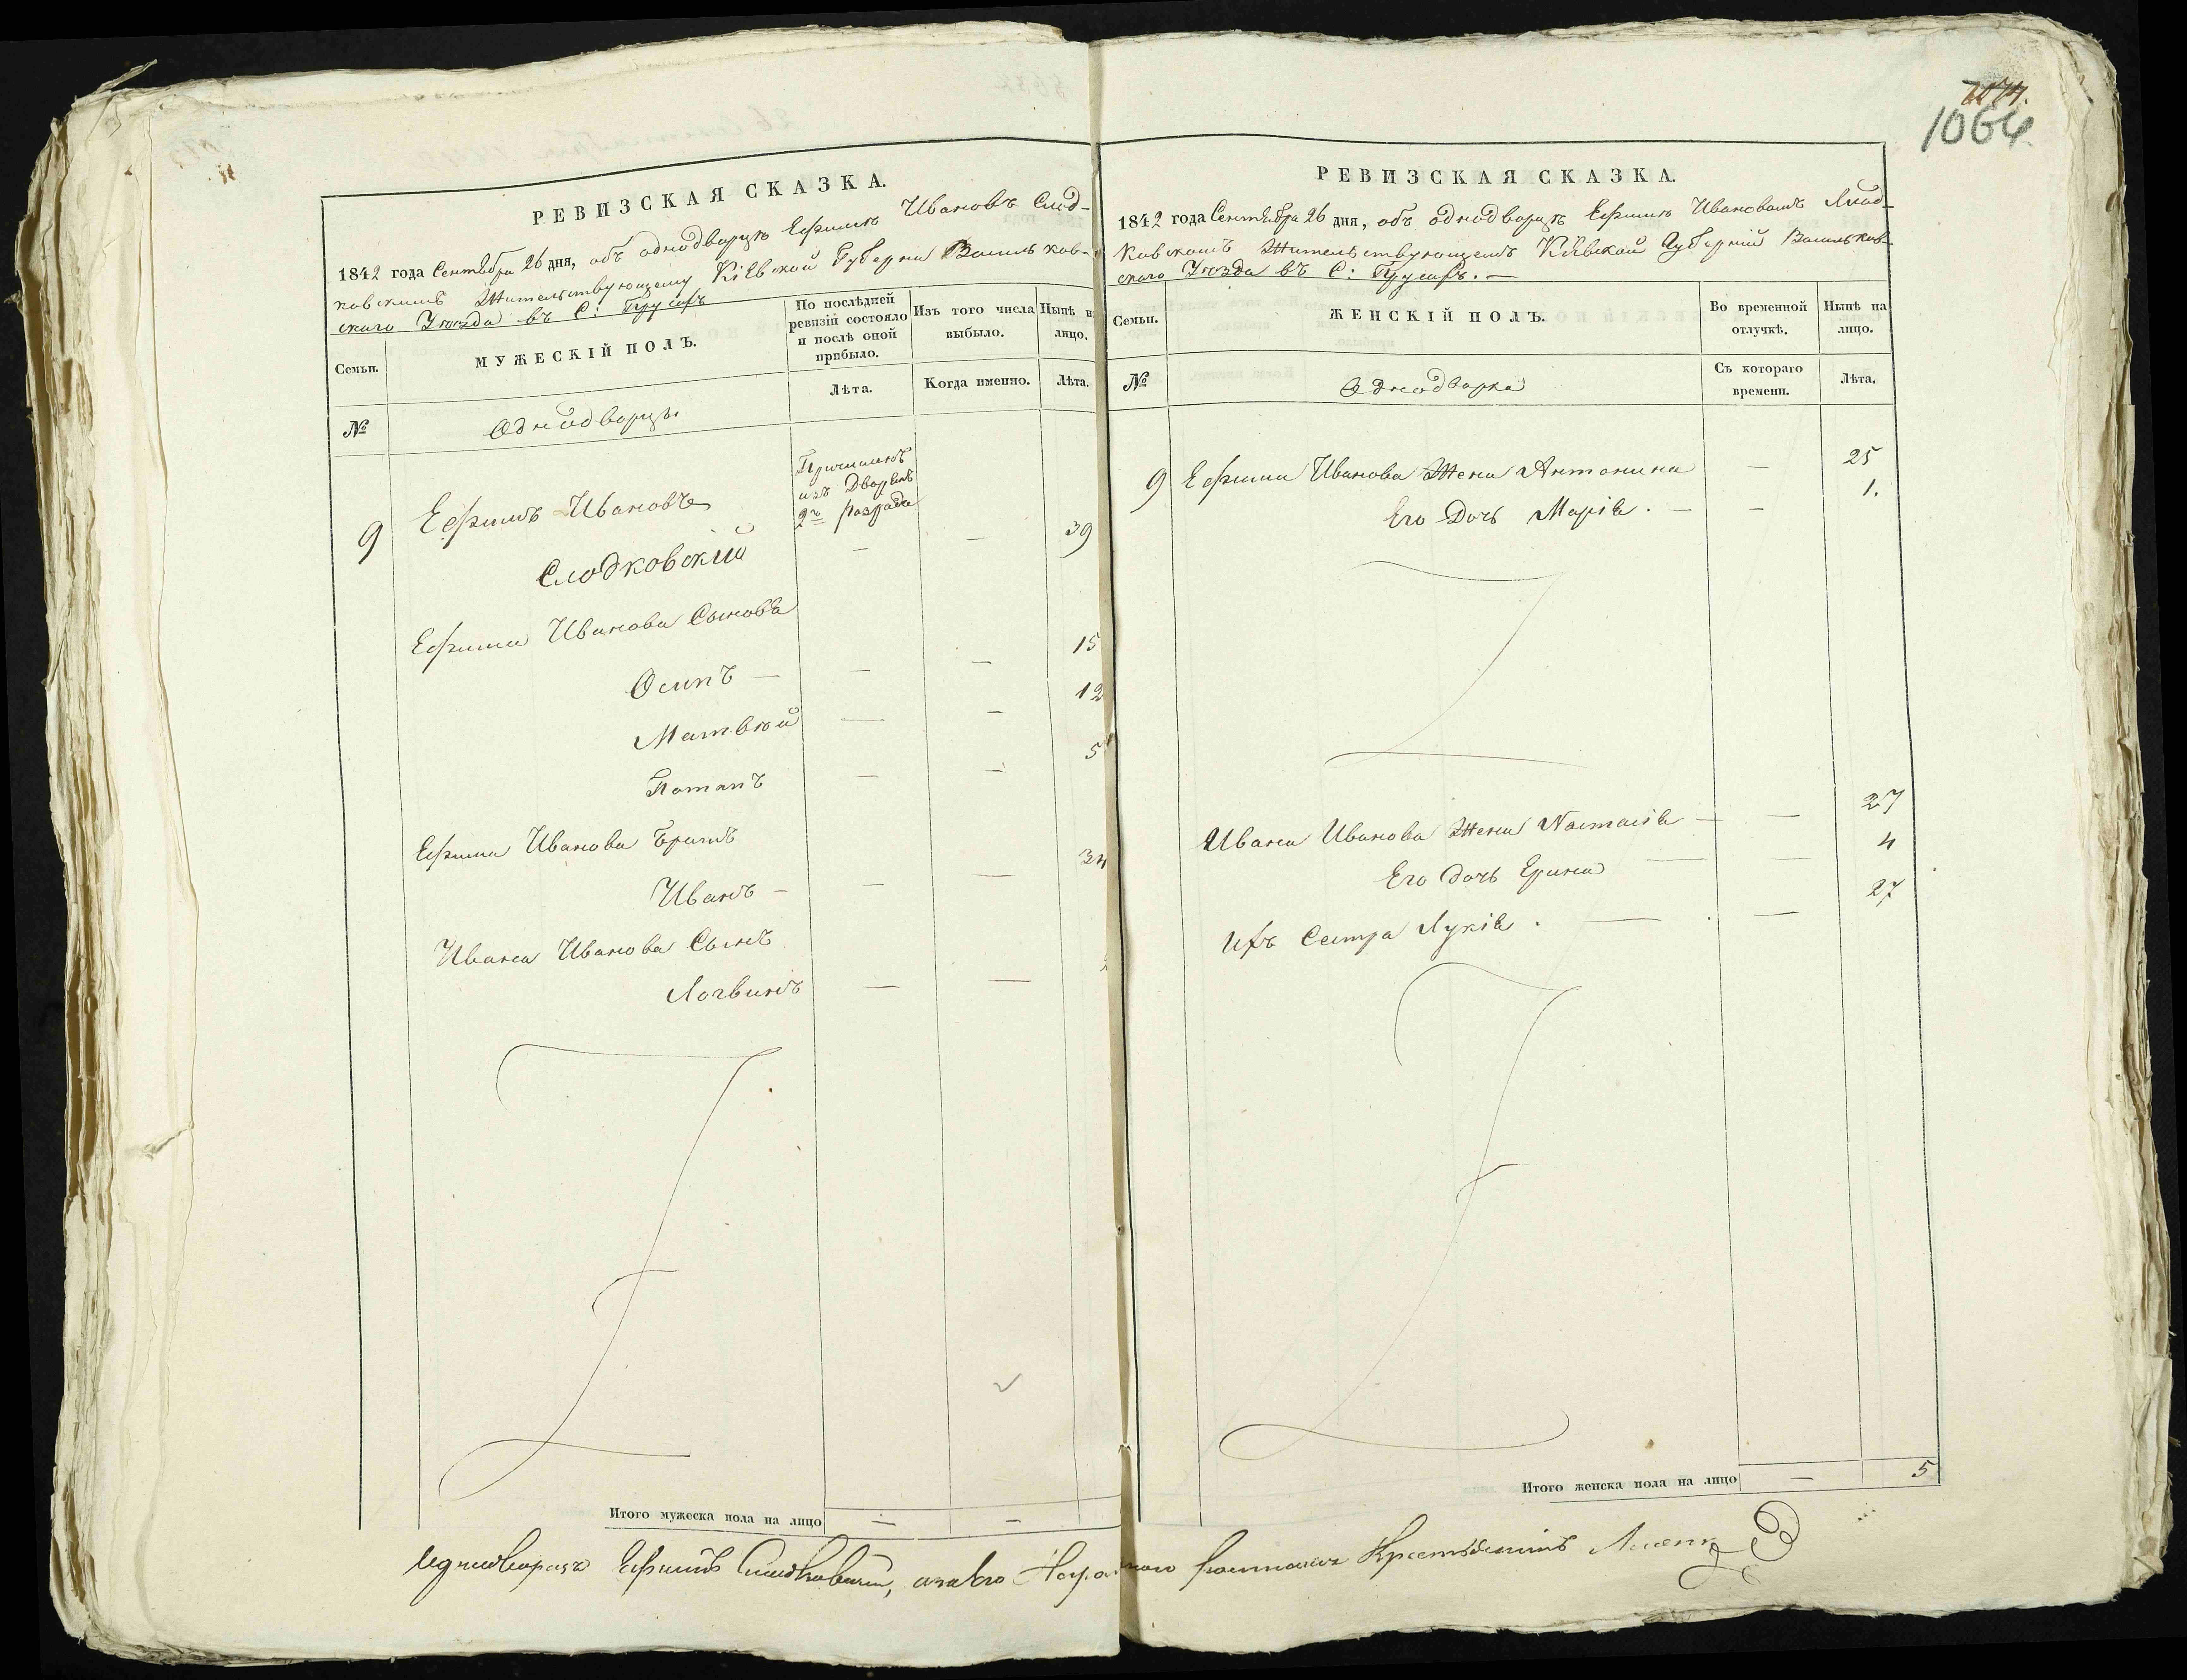 РЕВИЗСКАЯ СКАЗКА.
1842 года Сентября 26 дня, объ однодворцѣ Ефимѣ Ивановѣ Слод-
ковскимъ Жительствующему Кіевской Губерни Васильков-
скаго Уѣзда въ С: Прусахъ
Семьи.
МУЖЕСКІЙ ПОЛЪ.
По послѣдней ревизіи состояло и послѣ оной прибыло.
Изъ того числа выбыло.
Нынѣ на лицо.
Лѣта.
Когда именно.
Лѣта.
№
Однодворцы
Причисленъ
изъ Дворянъ
2го разряда
9 Ефимъ Ивановъ
Слодковскій — — 39
Ефима Иванова Сыновя
Осипъ — — — 15
Матвѣй — — 12
Потапъ — — 5
Ефима Иванова Братъ
Иванъ — — — 34
Ивана Иванова Сынъ
Логвинъ — —
Итого мужеска пола на лицо — —
1064
РЕВИЗСКАЯ СКАЗКА.
1842 года Сентября 26 дня, объ однодворцѣ Ефимѣ Ивановомъ Слод-
ковскомъ Жительствующемъ Кіевской Губерніи Васильков-
скаго Уѣзда въ С: Прусахъ. —
Семьи.
ЖЕНСКІЙ ПОЛЪ.
Во временной отлучкѣ.
Нынѣ на лицо.
№
Однодворка
Съ котораго времени.
Лѣта.
9 Ефима Иванова Жена Антонина — 25
Его Дочь Марія. — — 1.
Ивана Иванова Жена Настасія — — 27
Его дочь Ерина — — 4
Ихъ Сестра Лукія. — — 27
Итого женска пола на лицо — 5
Однодворецъ Ефимъ Слодковскій, а за его